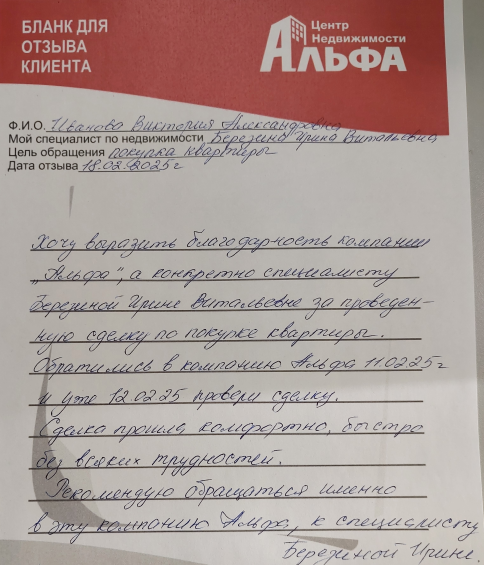 БЛАНК ДЛЯ
ОТЗЫВА
КЛИЕНТА
Центр
Недвижимости
АЛЬФА
Ф.И.О. Иванова Виктория Александровна
Мой специалист по недвижимости Березина Ирина Витальевна
Цель обращения покупка квартиры
Дата отзыва 18.02.2025г
Хочу выразить благодарность компании
„Альфа“, а конкретно специалисту
Березиной Ирине Витальевне за проведен-
ную сделку по покупке квартиры.
Обратились в компанию Альфа 11.02.25г
и уже 12.02.25 провери сделку.
Сделка прошла комфортно, быстро
без всяких трудностей.
Рекомендую обращаться именно
в эту компанию Альфа, к специалисту
Березиной Ирине.